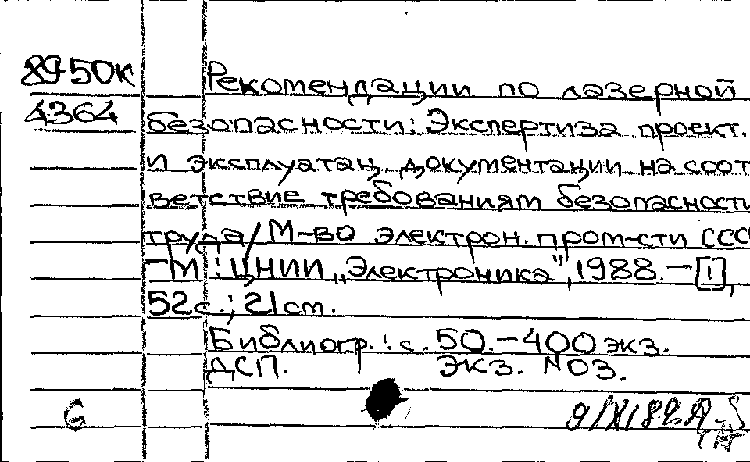 89-50к
4364
Рекомендации по лазерной
безопасности: Экспертиза проект.
и эксплуатац. документации на соот-
ветствие требованиям безопасности
труда / М-во электрон. пром-сти СССР
-М.: ЦНИИ „Электроника", 1988. - [1],
52 с.; 21 cm.
Библиогр.: с. 50. - 400 экз.
ДСП. экз. N 03.
G